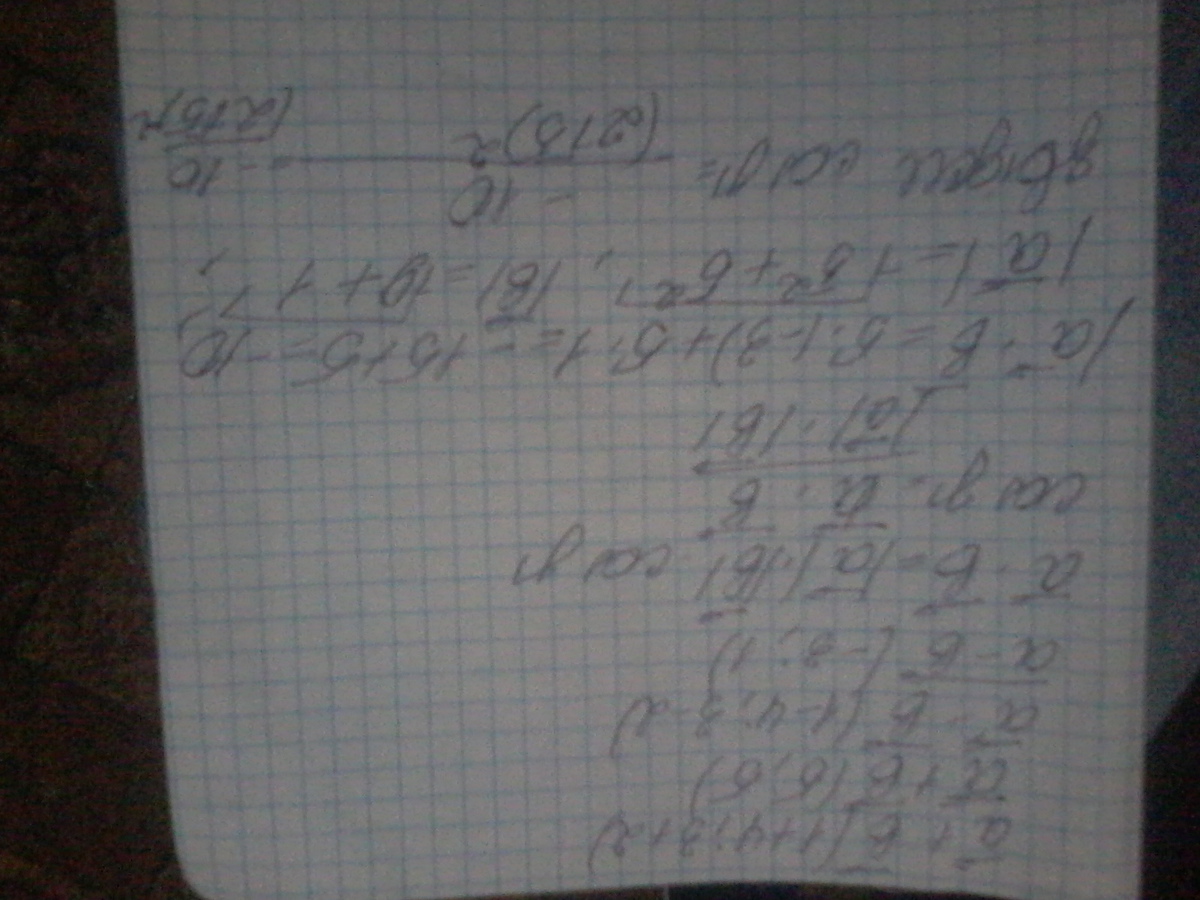 a + b (1+4; 3+2)
a + b (5; 5)
a - b (1-4; 3-2)
a - b (-3; 1)
a · b = |a| · |b| cos γ
cos γ = a · b
|a| · |b|
a · b = 5 · (-3) + 5 · 1 = -15 + 5 = -10
|a| = √5² + 5²; |b| = √9 + 1;
cos γ =
-10
= -10